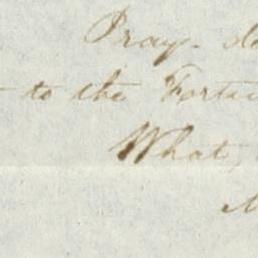 Pray- de
to the Fortu
What,